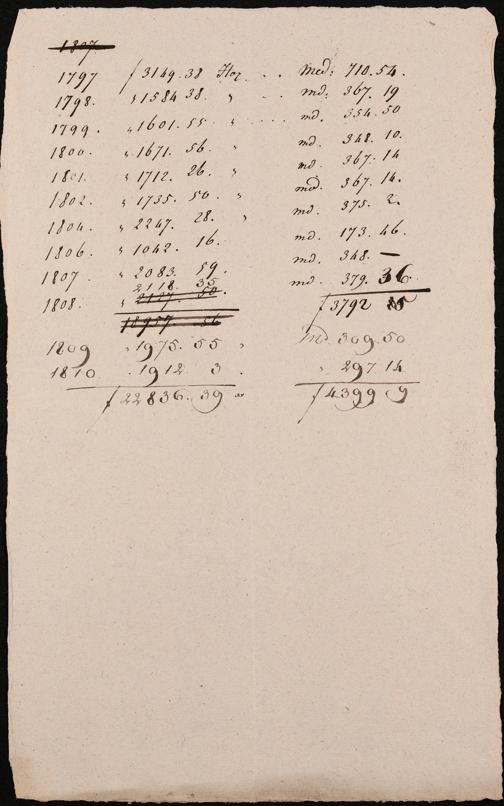 1807.
1797 f 3149.38 Hlg . . . med: 710.54.
1798. " 1584 38. " . . . md. 367. 19
1799. " 1601. 55 " . . . . md. 354. 50
1800. " 1671. 56. " md. 348. 10.
1801. " 1712. 26. " md. 367. 14
1802. " 1755. 50. " md. 367. 14.
1804. " 2247. 28. " md. 375. 2.
1806. " 1042. 16. md. 173. 46.
1807 " 2083. 59. md. 348. —
2118. 35
1808. " 2127. 50. md. 379. 36
18957 56 f 3792 15
1809 " 1975. 55 " md. 309. 50
1810 . 1912. 3 . " 297 14
f 22836. 39 " f 4399 9